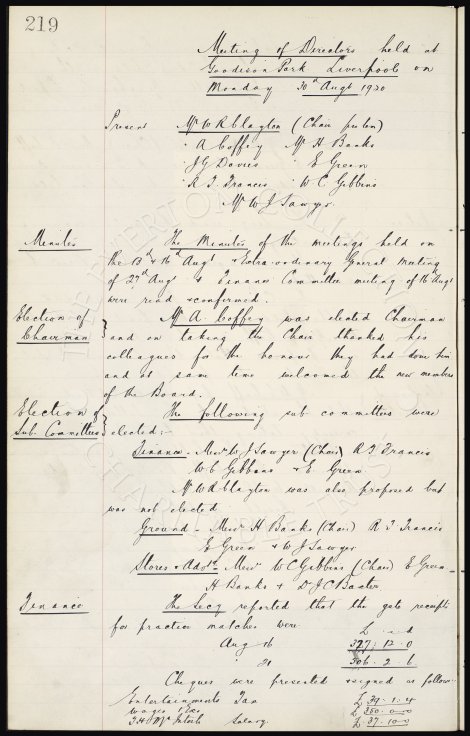 219
Meeting of Directors held at
Goodison Park Liverpool on
Monday 30th Augt 1920
Present Mr W R Clayton (Chair pro tem)
" A Coffey Mr H Banks
" J G Davies " E Green
" R T Francis " W C Gibbins
Mr W J Sawyer
Minutes The Minutes of the meetings held on
the 13th & 16th Augt & Extra-ordinary General Meeting
of 27th Augt & Finance Committee meeting of 16th Augt
were read & confirmed.
Election of Mr A. Coffey was elected Chairman
Chairman and on taking the Chair thanked his
colleagues for the honour they had done him
and at same time welcomed the new members
of the Board.
Election of The following sub committees were
Sub Committees elected:-
Finance - Messrs W J Sawyer (Chair) R T Francis
W C Gibbins & E. Green.
Mr W R Clayton was also proposed but
was not elected
Ground - Messrs H Banks (Chair) R T Francis
E Green & W J Sawyer
Stores & Advtg Messrs W C Gibbins (Chair) E Green
H Banks & Dr J C Baxter
Finance The Secy reported that the gate receipts
for practice matches were
£ s d
Aug 16 327 : 12 . 0
" 21 306 . 2 . 6
Cheques were presented & signed as follows
Entertainments Tax £ 39 . 1 . 4
Wages £ 350 . 0 . 0
T. H. McIntosh Salary. £ 37 . 10 . 0